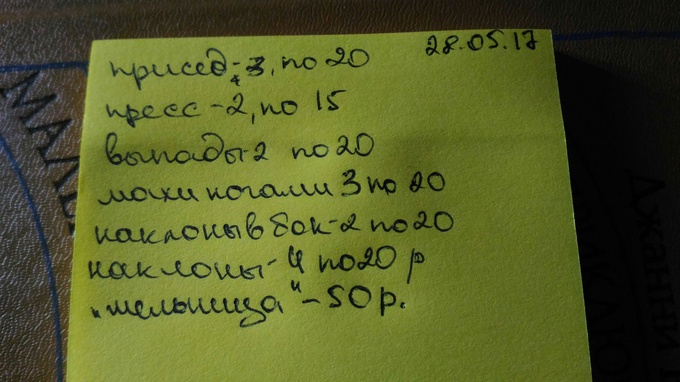 28.05.17
присед-3, по 20
пресс-2, по 15
выпады-2 по 20
махи ногами 3 по 20
наклоны в бок-2 по 20
наклоны-4 по 20 р
"мельница"-50 р.
МАЛЬ
Джанни